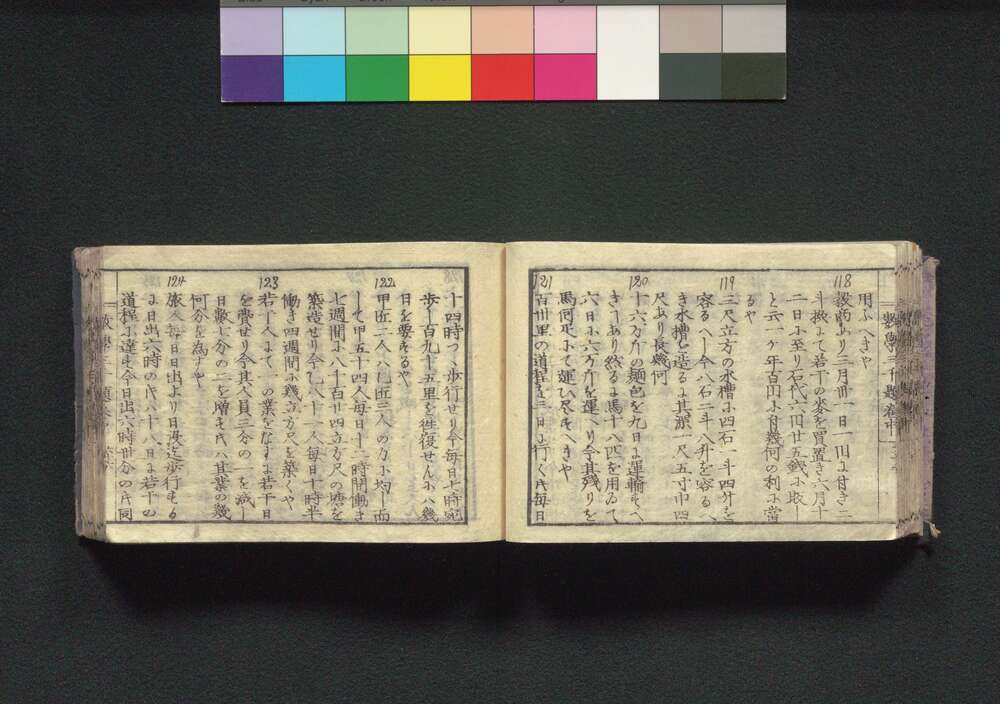 用ふへきや
118
穀商あり三月卅一日一円に付き二
斗換にて若干の麦を買置き六月十
二日に至り石代六円廿五銭に取
と云一ケ年百円に付幾何の利に當
るや
119
三尺立方の水槽に四石一斗四升を
容るへし今八石二斗八升を容るへ
き水槽を造るに其深一尺五寸巾四
尺あり長幾何
120
十六万斤の麺包を九日に運輸すへ
きにあり然るに馬十八匹を用ゐて
六日に六万斤を運へり今其残りを
馬何疋にて運ひ尽すへきや
121
百卅里の道程を三日に行く氏毎日
十四時つゝ歩行せり今毎日七時宛
歩し百九十五里を往復せんには幾
日を要するや
122
甲匠二人ハ乙匠三人の力に均し而
して甲五十四人毎日十二時間働き
七週間に八千百卅四立方尺の塘を
築造せり今乙八十一人毎日十時半
働き四週間に幾立方尺を築くや
123
若干人にて一の業をなすに若干日
を費せり今其人員三分の一を減し
日數七分の二を増す氏ハ其業の幾
何分を為すや
124
旅人毎日日出より日没迄歩行する
に日出六時の氏ハ十八日に若干の
道程に達す今日出六時卅分の氏同